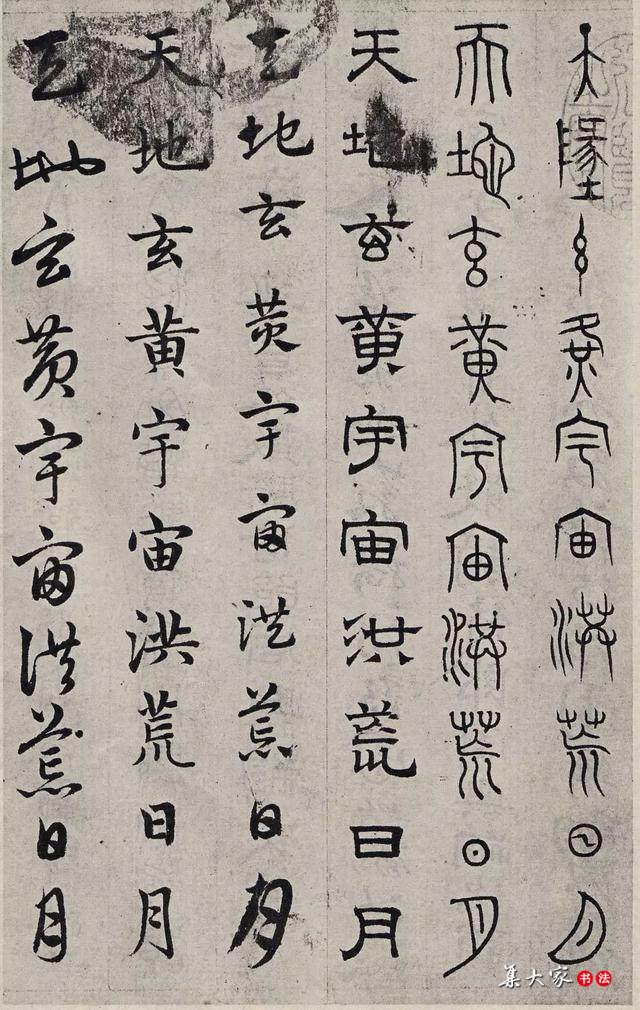 天地玄黄宇宙洪荒日月
天地玄黄宇宙洪荒日月
天地玄黄宇宙洪荒日月
天地玄黄宇宙洪荒日月
天地玄黄宇宙洪荒日月
天地玄黄宇宙洪荒日月
集大家书法